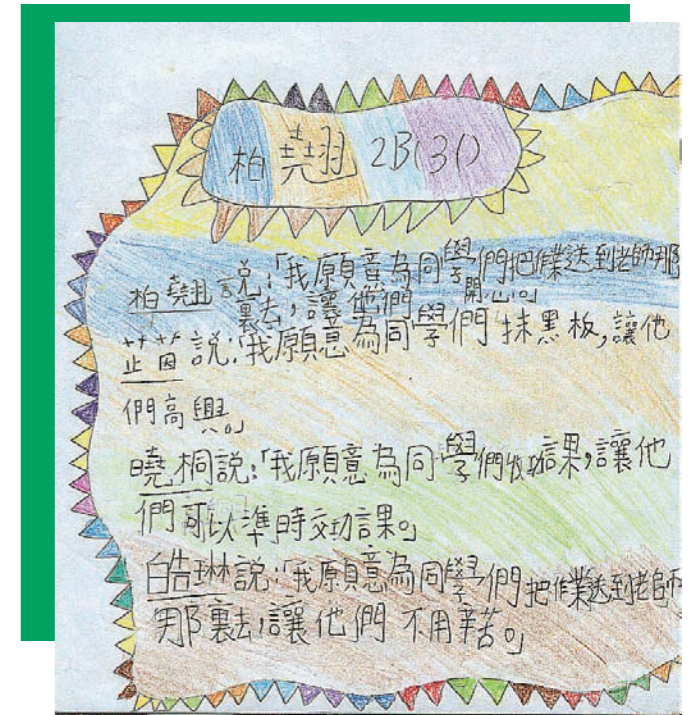 柏翹 2B(31)
柏翹說:「我願意為同學們把作業送到老師那
裏去,讓他們開心。」
芷茵說:「我願意為同學們抹黑板,讓他
們高興。」
曉桐說:「我願意為同學們收功課,讓他
們可以準時交功課。」
皓琳說:「我願意為同學們把作業送到老師
那裏去,讓他們不用辛苦。」